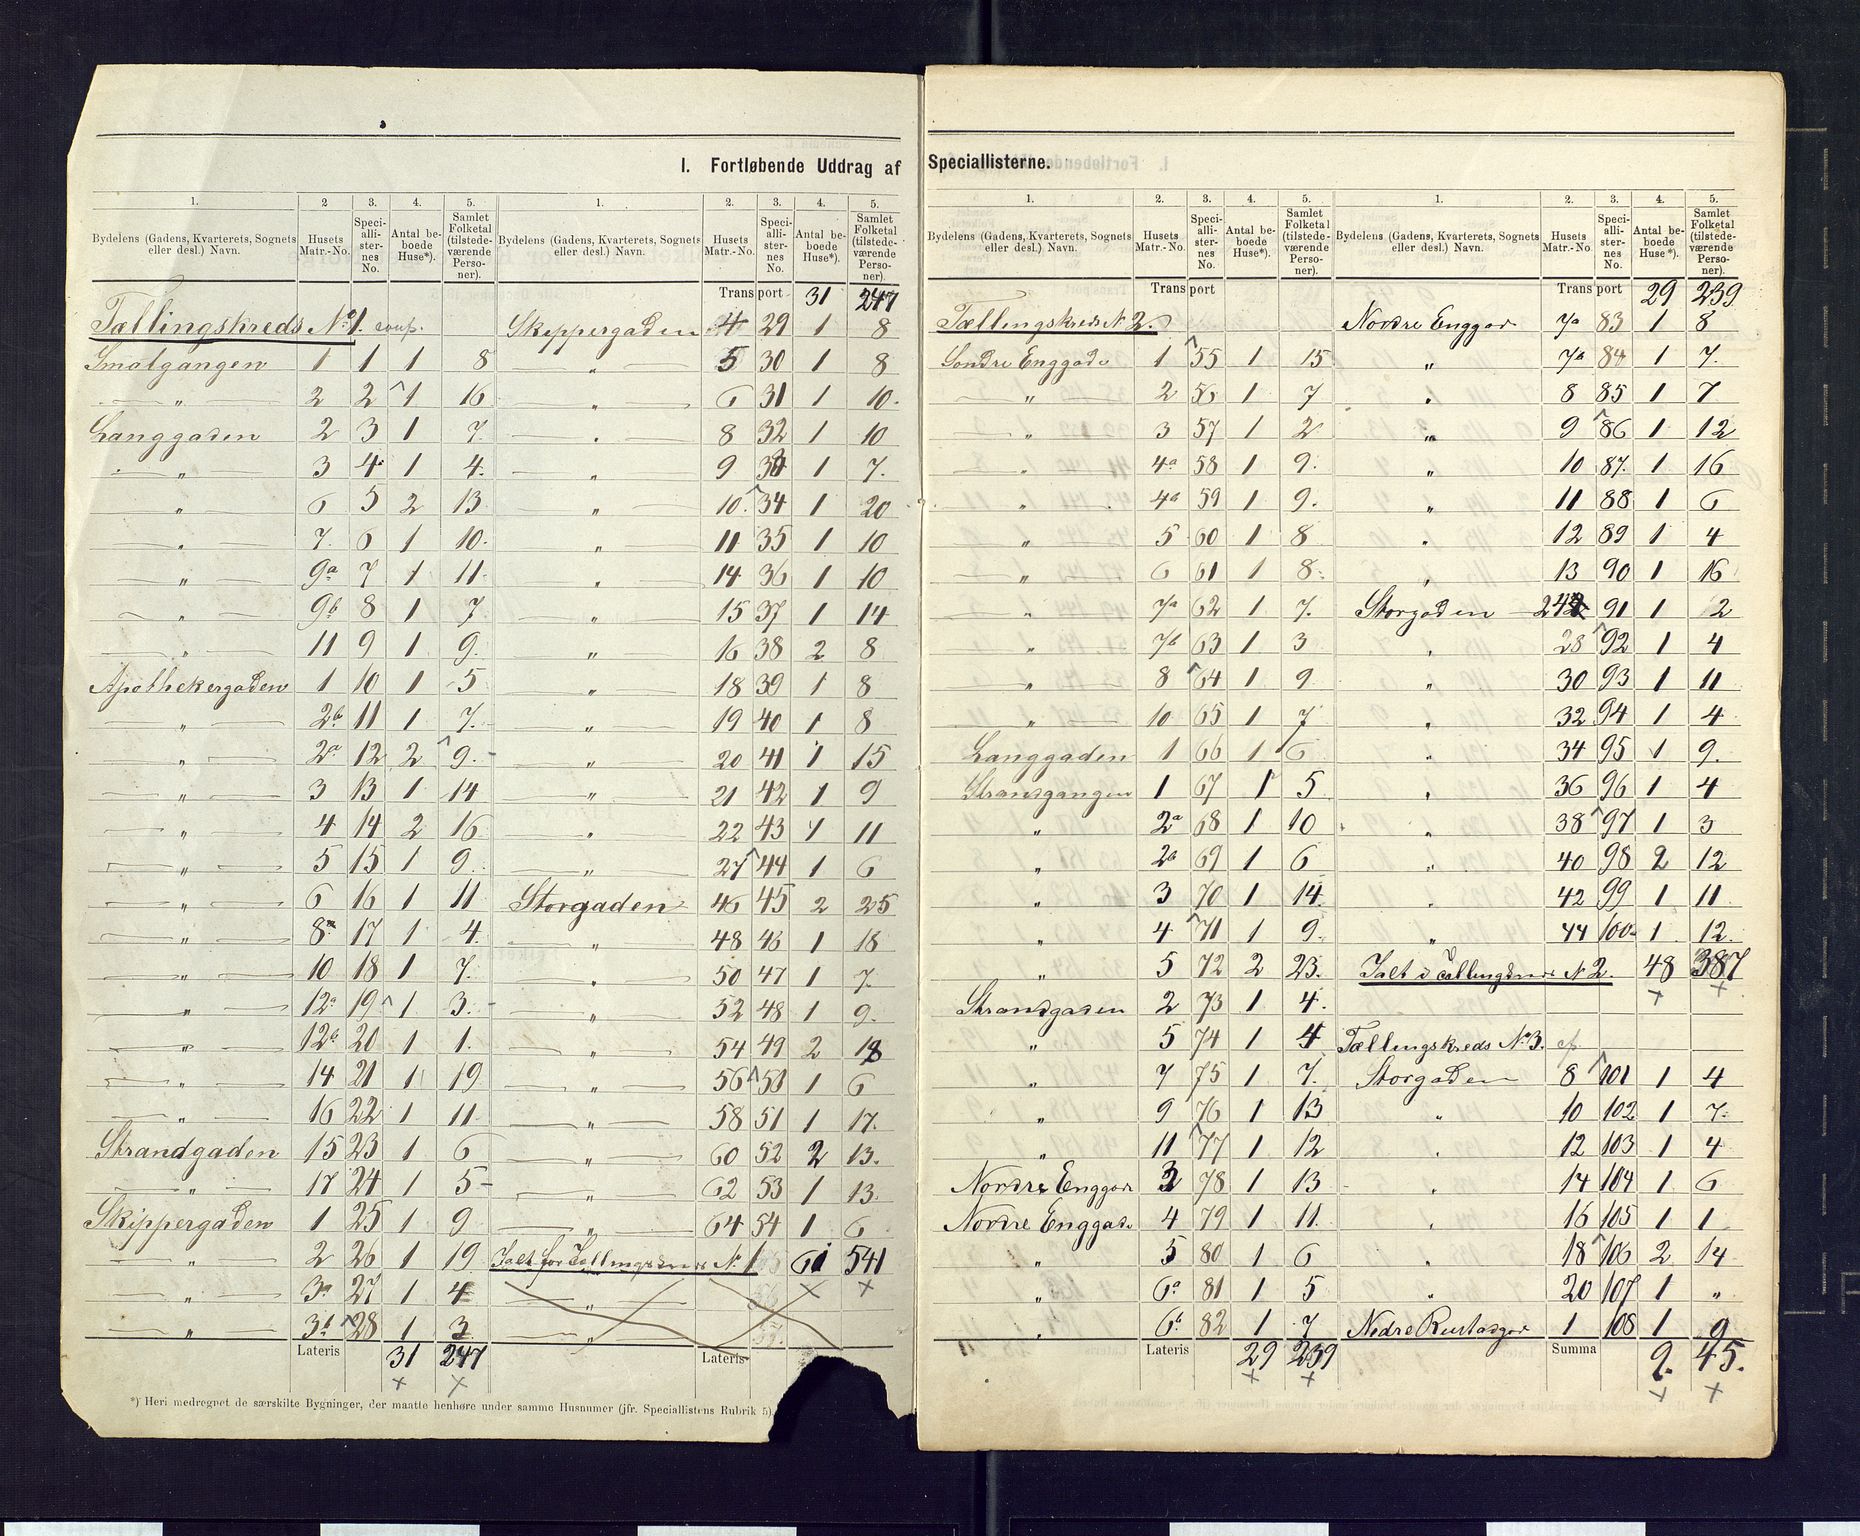 I. Fortløbende Uddrag af Speciallisterne.
1. 2 3. 4. 5.
Bydelens (Gadens, Kvarterets, Sognets eller desl.) Navn. Husets Matr.-No. Speciallisternes No. Antal beboede Huse*). Samlet Folketal (tilstedeværende Personer).
Tællingskreds No 1.
Smalgangen 1 1 1 8
" 2 2 1 16
Langgaden 2 3 1 7.
" 3 4 1 4.
" 6 5 2 13
" 7. 6 1 10.
" 9a 7 1 11.
" 9b 8 1 7
" 11 9 1 9.
Apothekergaden 1 10 1 5
" 2b 11 1 7.
" 2a 12 2 9.
" 3 13 1 14
" 4 14 2 16
" 5 15 1 9.
" 6 16 1 11
" 8a 17 1 4.
" 10 18 1 7.
" 12a 19 1 3.
" 12b 20 1 1.
" 14 21 1 19
" 16 22 1 11.
Strandgaden 15 23 1 6
" 17 24 1 5
Skippergaden 1 25 1 9
" 2 26 1 19
" 3a 27 1 4
" 3b 28 1 3
Lateris 31 247
*) Heri medregnet de særskilte Bygninger, der maatte henhøre under samme Husnumer (jfr. Speciallistens Rubrik 5).
1. 2. 3. 4. 5.
Bydelens (Gadens, Kvarterets, Sognets eller desl.) Navn. Husets Matr.-No. Speciallisternes No. Antal beboede Huse*). Samlet Folketal (tilstedeværende Personer).
Transport 31 247
Skippergaden 4 29 1 8
" 5 30 1 8
" 6 31 1 10.
" 8 32 1 10
" 9 33 1 7.
" 10. 34 1 20
" 11 35 1 10
" 14 36 1 10
" 15 37 1 14
" 16 38 2 8
" 18 39 1 8
" 19 40 1 8
" 20 41 1 15
" 21 42 1 9
" 22 43 1 11
" 27 44 1 6
Storgaden 46 45 2 25
" 48 46 1 18
" 50 47 1 7.
" 52 48 1 9.
" 54 49 2 18
" 56 50 1 6
" 58 51 1 17.
" 60 52 2 13.
" 62 53 1 13.
" 64 54 1 6
Ialt for Tællingskreds No 1 61 541
"
"
Lateris
1. 2. 3. 4. 5.
Bydelens (Gadens, Kvarterets, Sognets eller desl.) Navn. Husets Matr.-No. Speciallisternes No. Antal beboede Huse*). Samlet Folketal (tilstedeværende Personer).
Transport
Tællingskreds N 2.
Søndre Enggade 1 55 1 15
" 2 56 1 7
" 3 57 1 2
" 4a 58 1 9.
" 4b 59 1 9.
" 5 60 1 8
" 6 61 1 8
" 7a 62 1 7.
" 7b 63 1 3
" 8 64 1 9
" 10 65 1 7
Langgaden 1 66 1 6
Strandgangen 1 67 1 5
" 2a 68 1 10
" 2b 69 1 6
" 3 70 1 14
" 4 71 1 9.
" 5 72 2 23.
Strandgaden 2 73 1 4.
" 5 74 1 4
" 7 75 1 7.
" 9 76 1 13
" 11 77 1 12
Nordre Enggade 3 78 1 13
Nordre Enggade 4 79 1 11.
" 5 80 1 6
" 6a 81 1 5
" 6b 82 1 7
Lateris 29 239
1. 2. 3. 4. 5.
Bydelens (Gadens, Kvarterets, Sognets eller desl.) Navn. Husets Matr.-No. Speciallisternes No. Antal beboede Huse*). Samlet Folketal (tilstedeværende Personer).
Transport 29 239
Nordre Enggad 7a 83 1 8
" 7b 84 1 7.
" 8 85 1 7
" 9 86 1 12
" 10 87. 1 16
" 11 88 1 6
" 12 89 1 4
" 13 90 1 16
Storgaden 91 1 2
" 28 92 1 4
" 30 93 1 11
" 32 94 1 4
" 34 95 1 9.
" 36 96 1 4
" 38 97 1 3
" 40 98 2 12
" 42 99 1 11
" 44 100 1 12.
Ialt i Tællingskreds N 2. 48 387
Tællingskreds No 3.
Storgaden 8 101 1 4
" 10 102 1 7.
" 12 103 1 4
" 14 104 1 6
" 16 105 1 1
" 18 106 2 14
" 20 107 1 "
Nedre 1 108 1 9
Summa 9. 45.